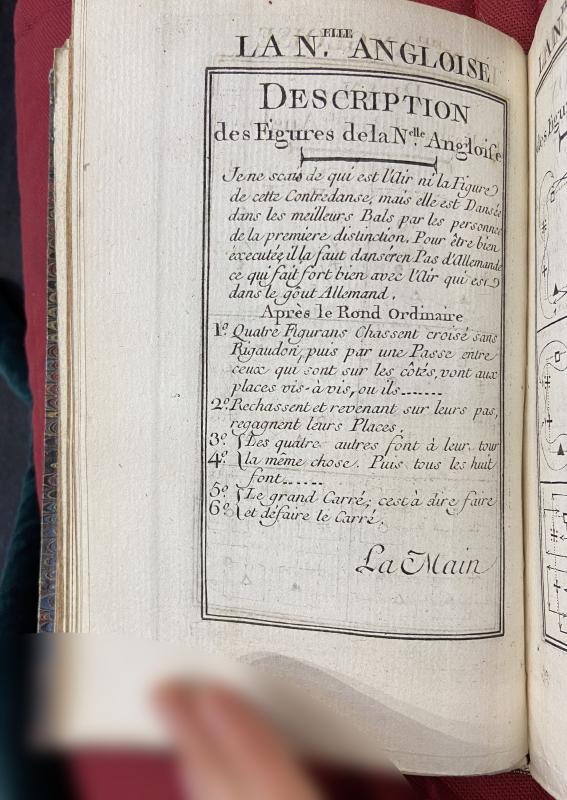 LA N.ELLE ANGLOISE
DESCRIPTION
des Figures de la N.elle Angloise
Je ne scais de qui est l'Air ni la Figure
de cette Contredanse, mais elle est Dansée
dans les meilleurs Bals par les personnes
de la premiere distinction. Pour être bien
éxecutée, il la faut danser en Pas d'Allemande
ce qui fait fort bien avec l'Air qui est
dans le goût Allemand.
Après le Rond Ordinaire
1º. Quatre Figurans Chassent croisé sans
Rigaudon, puis par une Passe entre
ceux qui sont sur les côtés, vont aux
places vis-à vis, ou ils.......
2º. Rechassent et revenant sur leurs pas,
regagnent leurs Places.
3º. { Les quatre autres font à leur tour
4º. { la même chose. Puis tous les huit
font......
5º. { Le grand Carré, c'est à dire faire
6º. { et défaire le Carré.
La Main